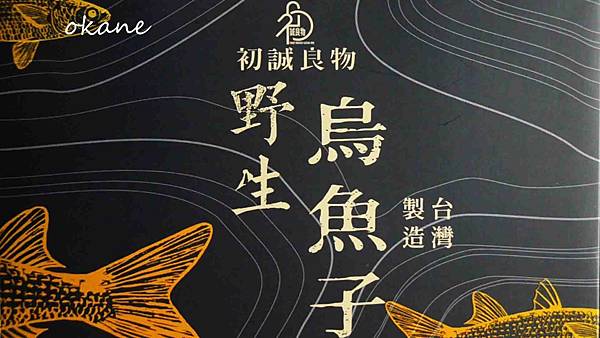 okane
誠良物
初誠良物
野生
烏魚子
台灣
製造